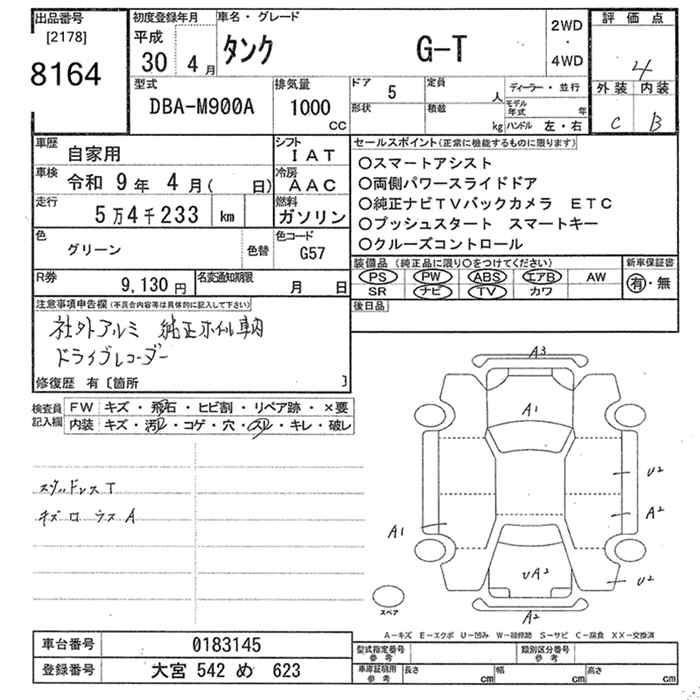 出品番号
[2178]
8164
初度登録年月
平成
30 4月
車名・グレード
タンク G-T
2WD
・
4WD
評価点
4
外装 内装
C B
型式
DBA-M900A
排気量
1000
CC
ドア 5
形状
定員 人
積載 kg
ディーラー・並行
モデル年式 年
ハンドル 左・右
車歴 自家用
シフト IAT
車検 令和 9年 4月( 日)
冷房 AAC
走行 5万4千233 km
燃料 ガソリン
色 グリーン 色替
色コード G57
R券 9,130円
名変通知期限 月 日
セールスポイント(正常に機能するものに限ります)
○スマートアシスト
○両側パワースライドドア
○純正ナビTVバックカメラ ETC
○プッシュスタート スマートキー
○クルーズコントロール
装備品(純正品に限り○をつけてください) 新車保証書
PS PW ABS エアB AW 有・無
SR ナビ TV カワ
後日品
注意事項申告欄(不具合内容等は具体的に記入して下さい)
社外アルミ 純正ホイル車内
ドライブレコーダー
修復歴 有〔箇所 〕
検査員記入欄
FW キズ・飛石・ヒビ割・リペア跡・×要
内装 キズ・汚レ・コゲ・穴・スレ・キレ・破レ
スタッドレスT
キズ A
A3
A1
U2
A2
A1
UA2
U2
A2
スペア
A−キズ E−エクボ U−凹み W−補修跡 S−サビ C−腐食 XX−交換済
車台番号 0183145
登録番号 大宮 542 め 623
型式指定番号 参考
類別区分番号 参考
車庫証明用 参考 長さ cm 幅 cm 高さ cm